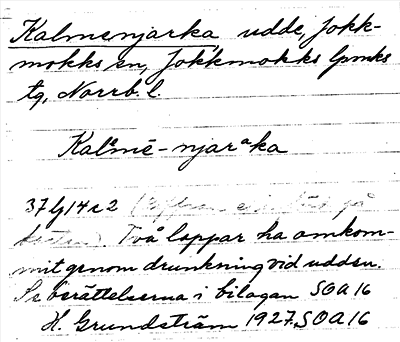 Kalmenjarka udde, Jokk-
mokks sn, Jokkmokks lpmks
tg, Norrb. l.
Kalᵃmē-njarᵃka
37 14 2
Två lappar ha omkom-
mit genom drunkning vid udden.
Se berättelserna i bilagan SOA 16
H. Grundström 1927. SOA 16